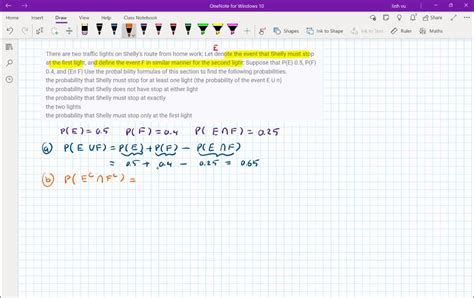 OneNote for Windows 10
linh vu
Home Insert Draw View Help Class Notebook
E
There are two traffic lights on Shelly's route from home work: Let denote the event that Shelly must stop
at the first light, and define the event F in similar manner for the second light. Suppose that P(E) 0.5, P(F)
0.4, and (En F) Use the probability formulas of this section to find the following probabilities.
the probability that Shelly must stop for at least one light (the probability of the event E U n)
the probability that Shelly does not have stop at either light
the probability that Shelly must stop at exactly
the two lights
the probability that Shelly must stop only at the first light
P(E) = 0.5 P(F) = 0.4 P(E ∩ F) = 0.25
a) P(E ∪ F) = P(E) + P(F) - P(E ∩ F)
= 0.5 + 0.4 - 0.25 = 0.65
b) P(E^c ∩ F^c) =